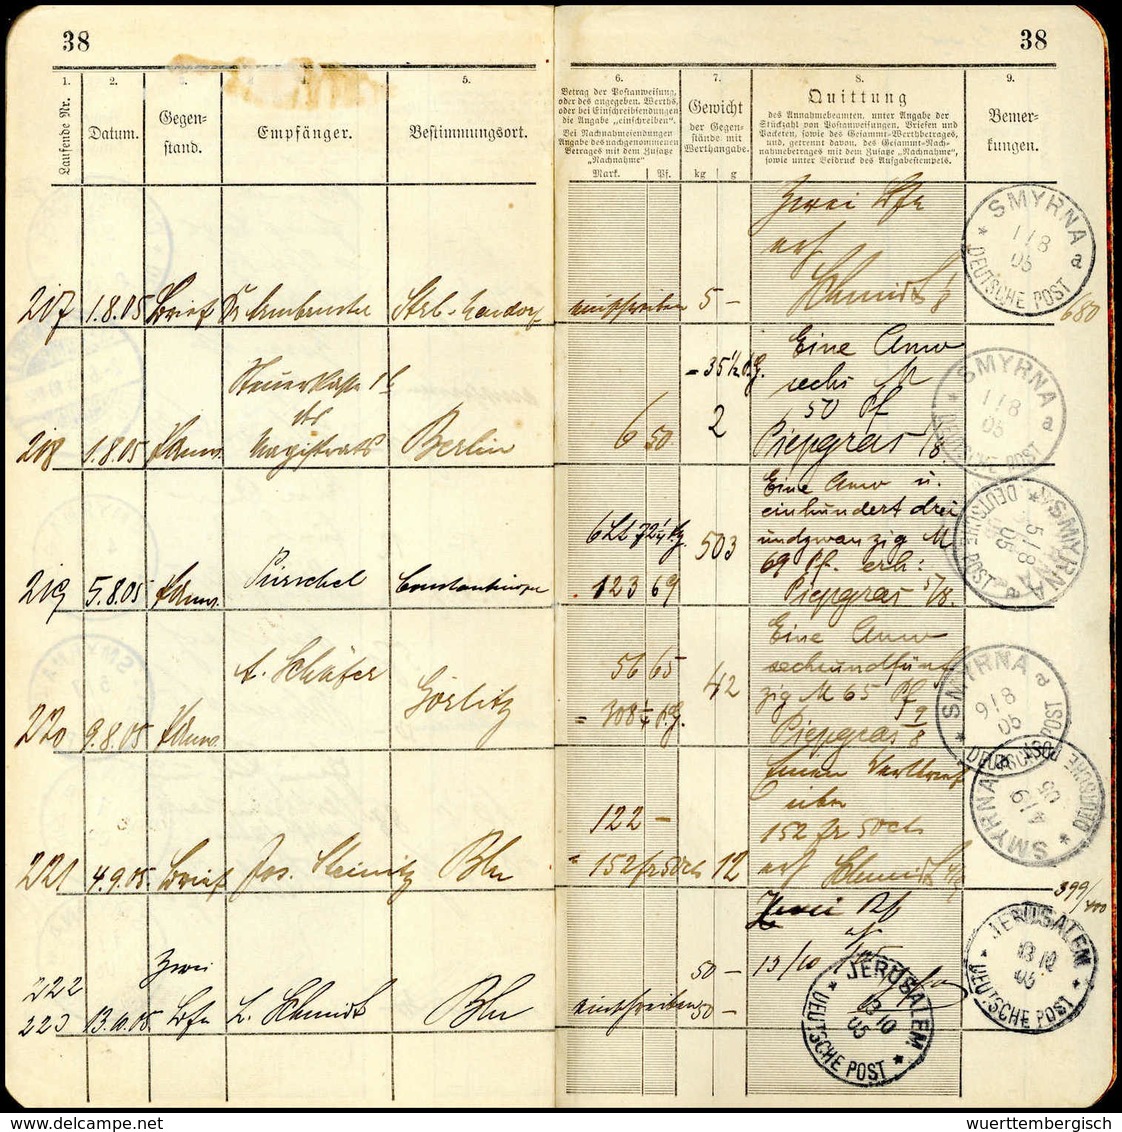 38
38
1.
2.
3.
4.
5.
6.
7.
8.
9.
Laufende Nr.
Datum.
Gegen-
stand.
Empfänger.
Bestimmungsort.
Betrag der Postanweisung,
oder des angegeben. Werths,
oder bei Einschreibsendungen
die Angabe „einschreiben“.
Bei Nachnahmesendungen
Angabe des nachgenommenen
Betrages mit dem Zusatze
„Nachnahme“
Mark.
Pf.
Gewicht
der Gegen-
stände mit
Werthangabe.
kg
g
Quittung
des Annahmebeamten, unter Angabe der
Stückzahl von Postanweisungen, Briefen und
Packeten, sowie des Gesammt-Werthbetrages,
und, getrennt davon, des Gesammt-Nach-
nahmebetrages mit dem Zusatze „Nachnahme“,
sowie unter Beidruck des Aufgabestempels.
Bemer-
kungen.
217 1.8.05 Brief einschreiben 5 –
Zwei Bfe
Schmidt
SMYRNA a
1/8
05
DEUTSCHE POST
680
218 1.8.05
Magistrats Berlin
6 50
= 35 1/2
2
Eine Anw
sechs M
50 Pf
Piepgras 1/8
SMYRNA a
1/8
05
DEUTSCHE POST
219 5.8.05
123 69
503
Eine Anw u.
einhundert drei
undzwanzig M
69 Pf. erh:
Piepgras 5/8.
SMYRNA a
5/8
05
DEUTSCHE POST
220 9.8.05
A. Schäfer Görlitz
56 65
= 308 1/4
42
Eine Anw
sechsundfünf
zig M 65 Pf
Piepgras 9/8
SMYRNA a
9/8
05
DEUTSCHE POST
221 4.9.05 Brief Jos. Steinitz Bln
122 –
= 152 fr 50 cts 12
Einen Wertbrief
über
152 fr 50 cts
Schmidt
SMYRNA
4/9
05
DEUTSCHE POST
399/400
222
223
Zwei
Bfe L. Schmidt Bln
einschreiben
50 –
50 –
Zwei Bf
13/10
JERUSALEM
13 10
05
DEUTSCHE POST
JERUSALEM
13 10
05
DEUTSCHE POST
wuerttembergisch